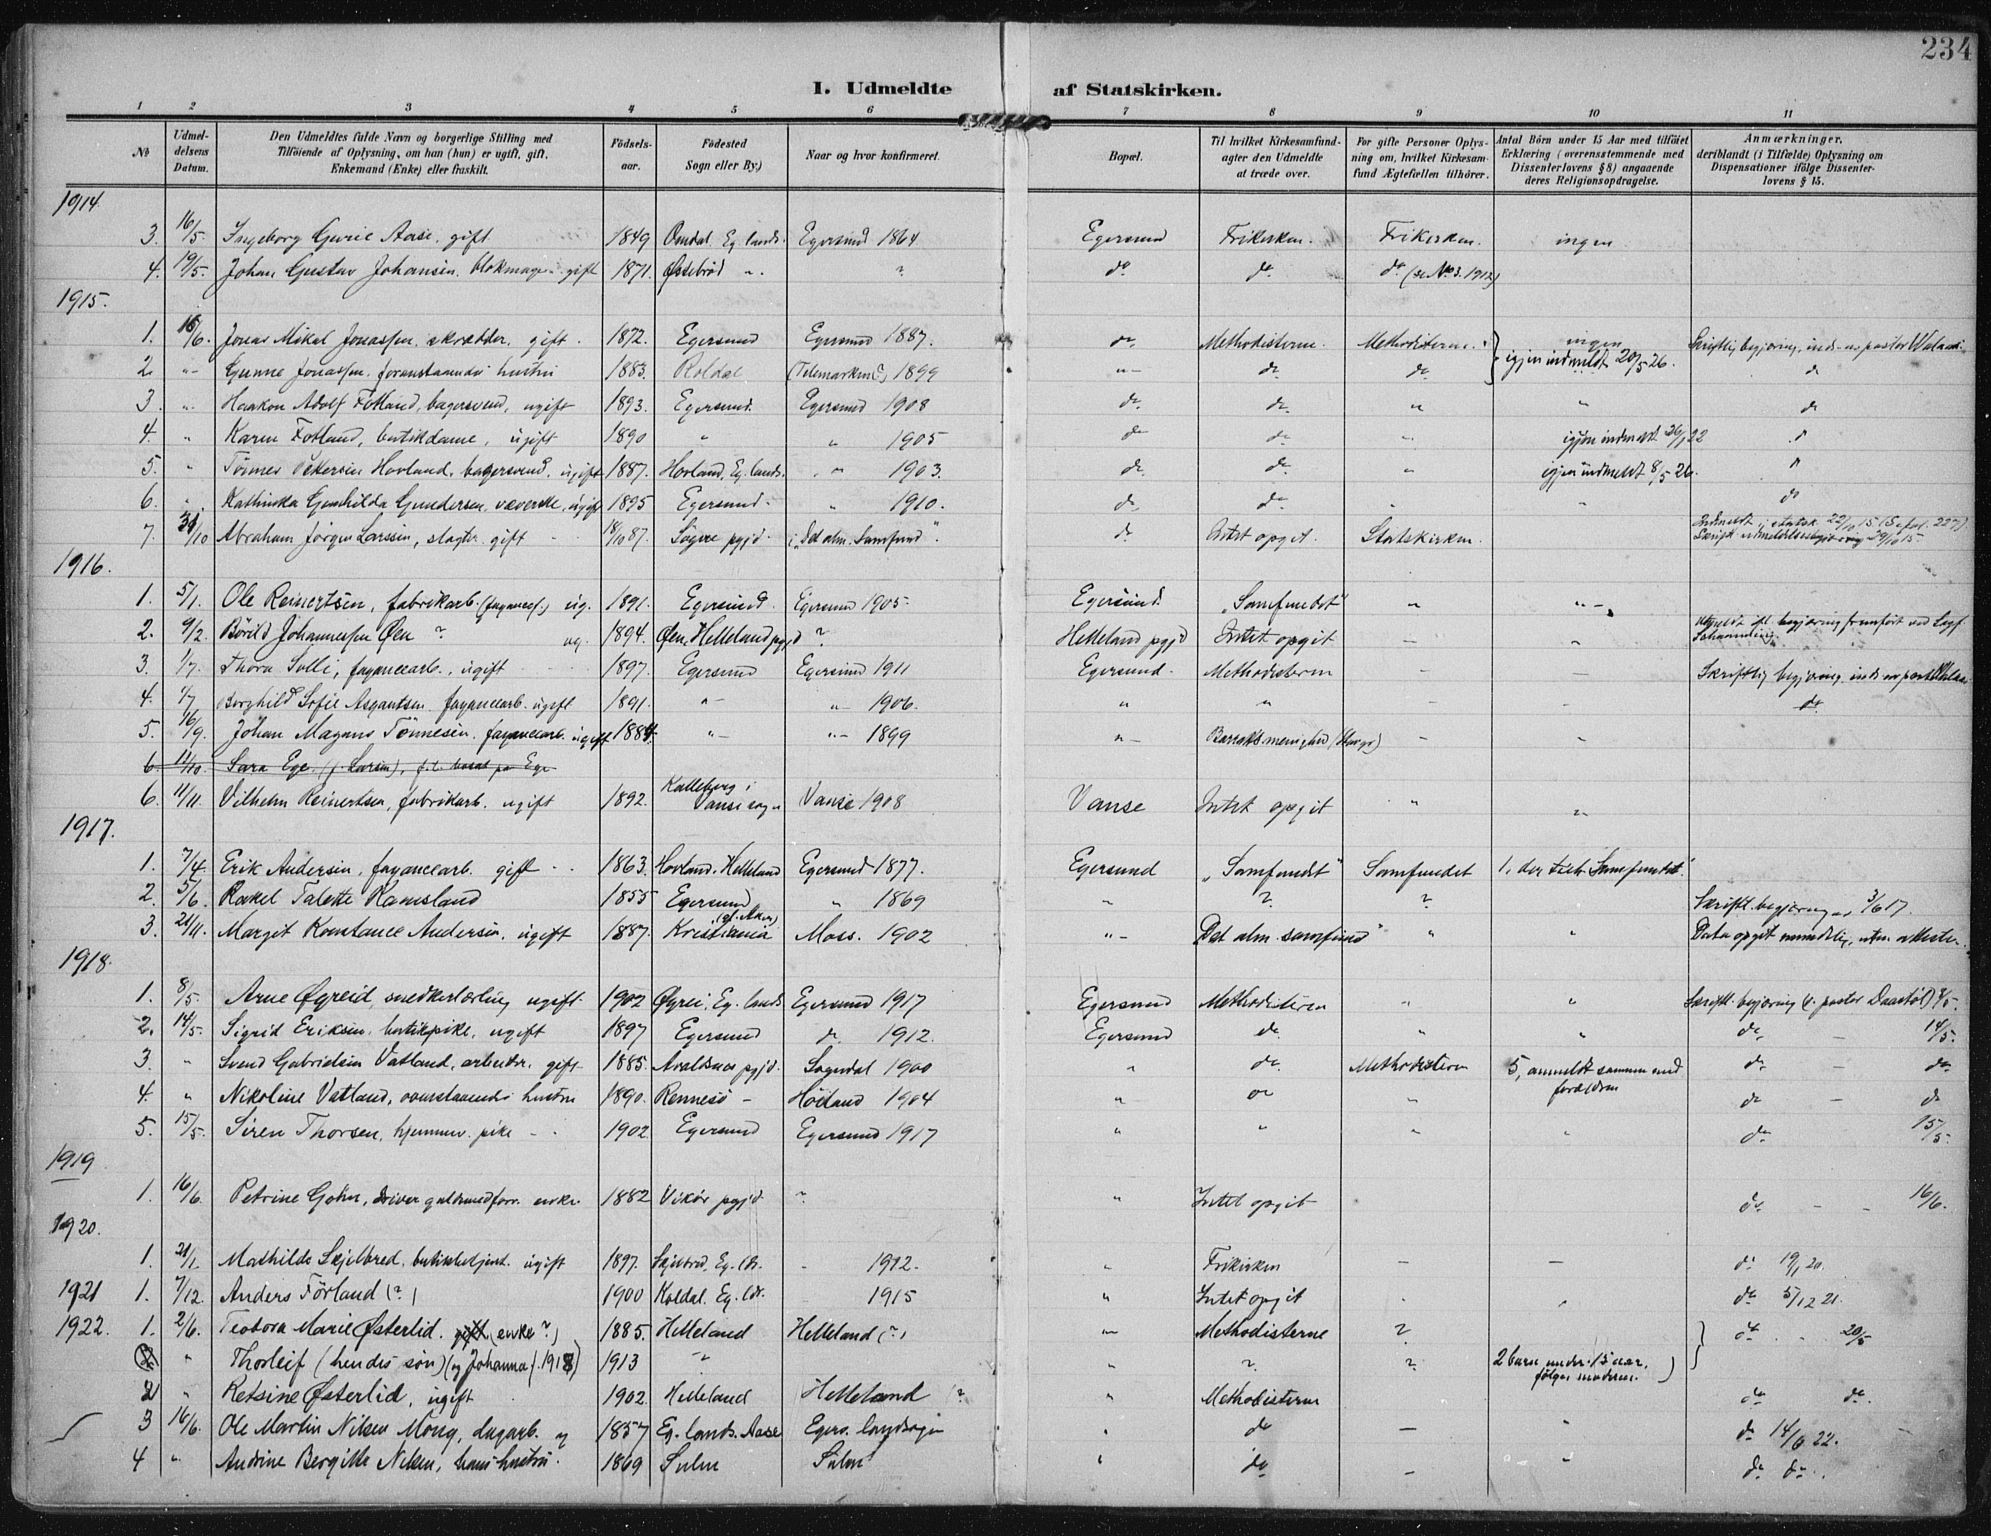 234
I. Udmeldte af Statskirken.
1 2 3 4 5 6 7 8 9 10 11
№ Udmeldelsens Datum. Den Udmeldtes fulde Navn og borgerlige Stilling med Tilföiende af Oplysning, om han (hun) er ugift, gift, Enkemand (Enke) eller fraskilt. Födselsaar. Födested Sogn eller By.) Naar og hvor konfirmeret. Bopæl. Til hvilket Kirkesamfund agter den Udmeldte at træde over. For gifte Personer Oplysning om, hvilket Kirkesamfund Ægtefællen tilhörer. Antal Börn under 15 Aar med tilföiet Erklæring (overensstemmende med Dissenterlovens §8) angaaende deres Religionsopdragelse. Anmærkninger, deriblandt (i Tilfælde) Oplysning om Dispensationer ifölge Dissenterlovens § 15.
1914
3. 16/5. Ingeborg Gurie Aase, gift 1849 Omdal. Eg. lands. Egersund 1864 Egersund Frikirken. Frikirken. ingen
4. 19/5. Johan Gustav Johansen. blokmager. gift 1871. Øssebrød " " do do do (se No 3. 1912)
1915.
1. 16/6. Jonas Mikal Jonassen. skrædder. gift. 1872. Egersund Egersund 1887. do Methodisterne. Methodisterne. ingen Skriftlig begjæring, inds. av pastor
2. " Gunne Jonassen. foranstaaendes hustru 1883. Roldal (Telemarken?) 1899 " do do igjen indmeldt 20/5 26. do
3. " Haakon Adolf Fotland, bagersvend, ugift 1893. Egersund. Egersund 1908 do do " " do
4. " Karen Fotland, butikdame, ugift 1890 " " 1905 do do " igjen indmeldt 26/1 22
5. " Tønnes Pedersen Hovland, bagersvend, ugift 1887. Hovland, Eg. lands. " 1903. do do " igjen indmeldt 8/5 26.
6. " Kathinka Gunhilda Gundersen, væverske, ugift 1895 Egersund. " 1910. do do " " do
7. 30/10 Abraham Jørgen Larssen, slagter. gift 18/10 87. Sogne pgjd. i "Det alm. Samfund". do Intet opgit. Statskirken. Indmeldt i statsk. 22/10 15 (Se fol. 227)
Skriftl. 29/10 15.
1916.
1. 5/1. Ole Reinertsen, fabrikarb. (fayancef.) ug. 1891. Egersund. Egersund 1905. Egersund. "Samfundet" " "
2. 9/2. Børild Johannessen Øen ? ug. 1894. Øen, Helleland pgjd ? Helleland pgjd Intet opgit – " begjæring fremført ved Johannsen
3. 1/7. Thora Solli, fayancearb., ugift 1897. Egersund Egersund 1911 Egersund. Methodisterne – – Skriftlig begjæring inds. av pastor
4. 1/7 Borghild Sofie Asgautsen fayancearb. ugift 1891. " " 1906. " " – – do.
5. 16/9. Johan Magnus Tønnesen. fayancearb. ugift 1884. " " 1899 " – –
6. 11/10. Sara Ege. (f. Larsen), bosat paa Ege
6. 11/11. Vilhelm Reinertsen, fabrikarb. ugift 1892. Kalleberg i Vanse sogn Vanse 1908 Vanse Intet opgit " "
1917.
1. 7/4. Erik Andersen, fayancearb. gift 1863. Hovland. Helleland Egersund 1877. Egersund "Samfundet" Samfundet 1, der tilh. Samfundet.
2. 5/6. Rakel Talette Ramsland 1855 Egersund " 1869 " ? ? Skriftl. begjæring av 3/6 17.
3. 21/11. Margit Konstance Andersen, ugift 1887. Kristiania (gl. Aker) Moss. 1902 " Det alm. samfund " " Data opgit mundtlig, uten attester.
1918.
1. 8/5. Arne Øgreid, snedkerlærling ugift. 1902 Øgrei. Eg. lands Egersund 1917 Egersund Methodisterne " " Skriftl. begjæring (v. pastor Daastøl) 8/5.
2. 14/5. Sigrid Eriksen. butikpike, ugift 1897 Egersund do. 1912. Egersund do. " " do – 14/5.
3 " Svend Gabrielsen Vatland, arbeider, gift 1885. Avaldsnes pgjd. Sogndal 1900 " do. Methodisterne 5, anmeldt sammen med forældrene do – do
4. " Nikoline Vatland, ovenstaaendes hustru 1890. Rennesø – Høiland 1904 " do " do – do
5. 15/5. Siren Thorsen, hjemmev. pike 1902. Egersund Egersund 1917 " " " " do 15/5.
1919
1. 16/6. Petrine Gohn, driver guldsmedforr. enke 1882 Vikør pgjd. ? " Intet opgit do. – – 16/6.
1920.
1. 21/1. Mathilde Skjelbred. butikbetjent. ugift 1897. Skjelbred, Eg. ls. – 1912. " Frikirken – – do 19/1 20.
1921 1. 7/12. Anders Förland (?) 1900 Koldal. Eg. lds. 1915 " Intet opgit do 5/12 21.
1922. 1. 2/6. Teodora Marie Østerlid. gift (enke?) 1885. Helleland Helleland (?) " Methodisterne ? do . . 20/5
" Thorleif (hendes søn) (og Johanna f. 1918) 1913 " " ? ? 2 barn under 15 aar, følger moderen.
2 " Retsine Østerlid, ugift 1902. Helleland Helleland ? " Methodisterne do do.
3 16/6. Ole Martin Nilsen Mong, dagarb. g 1857 Eg. lands. Aase Egers. landsogn " do – " do 14/6 22.
4 " Andrine Bergitte Nilsen, hans hustru. 1869 " do – " do do.